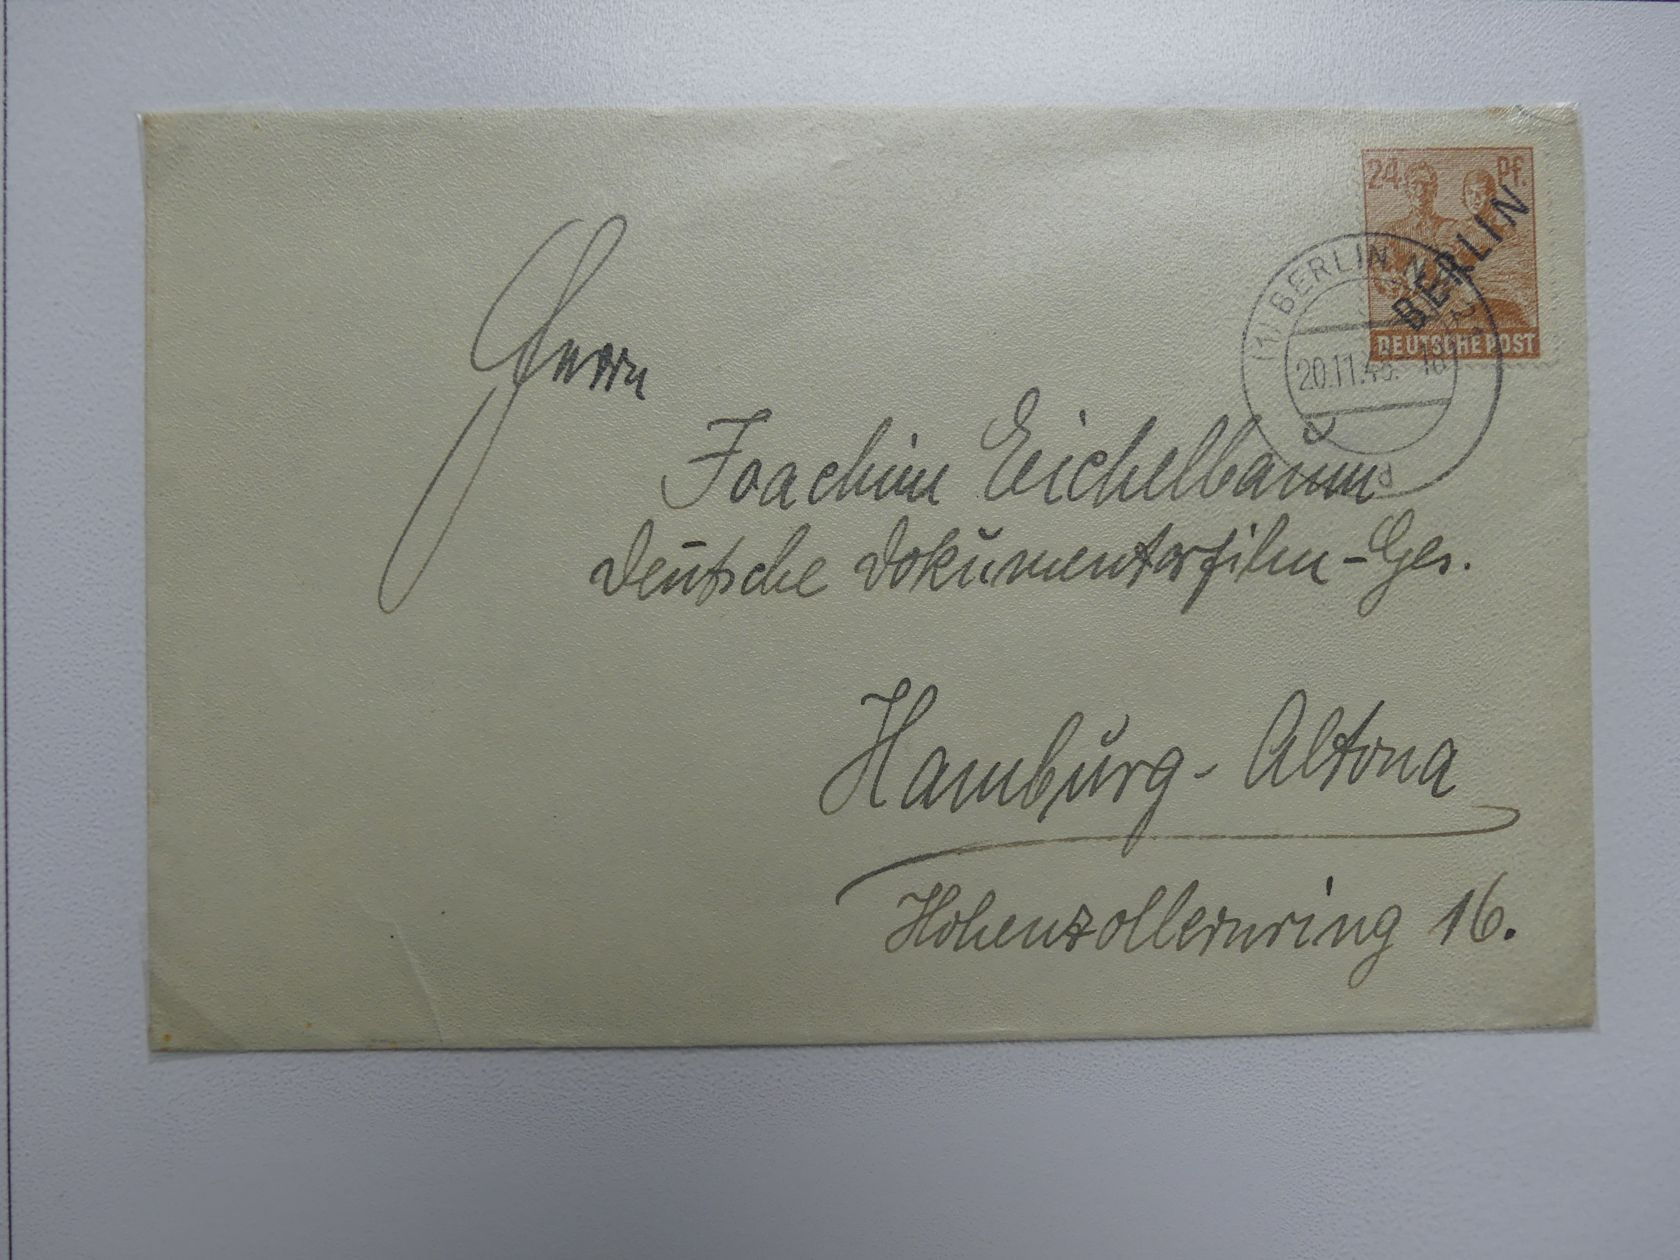 24 Pf.
BERLIN
DEUTSCHE POST
(1) BERLIN
20.11.48.
Herrn
Joachim Eichelbaum
Deutsche Dokumentarfilm-Ges.
Hamburg-Altona
Hohenzollernring 16.